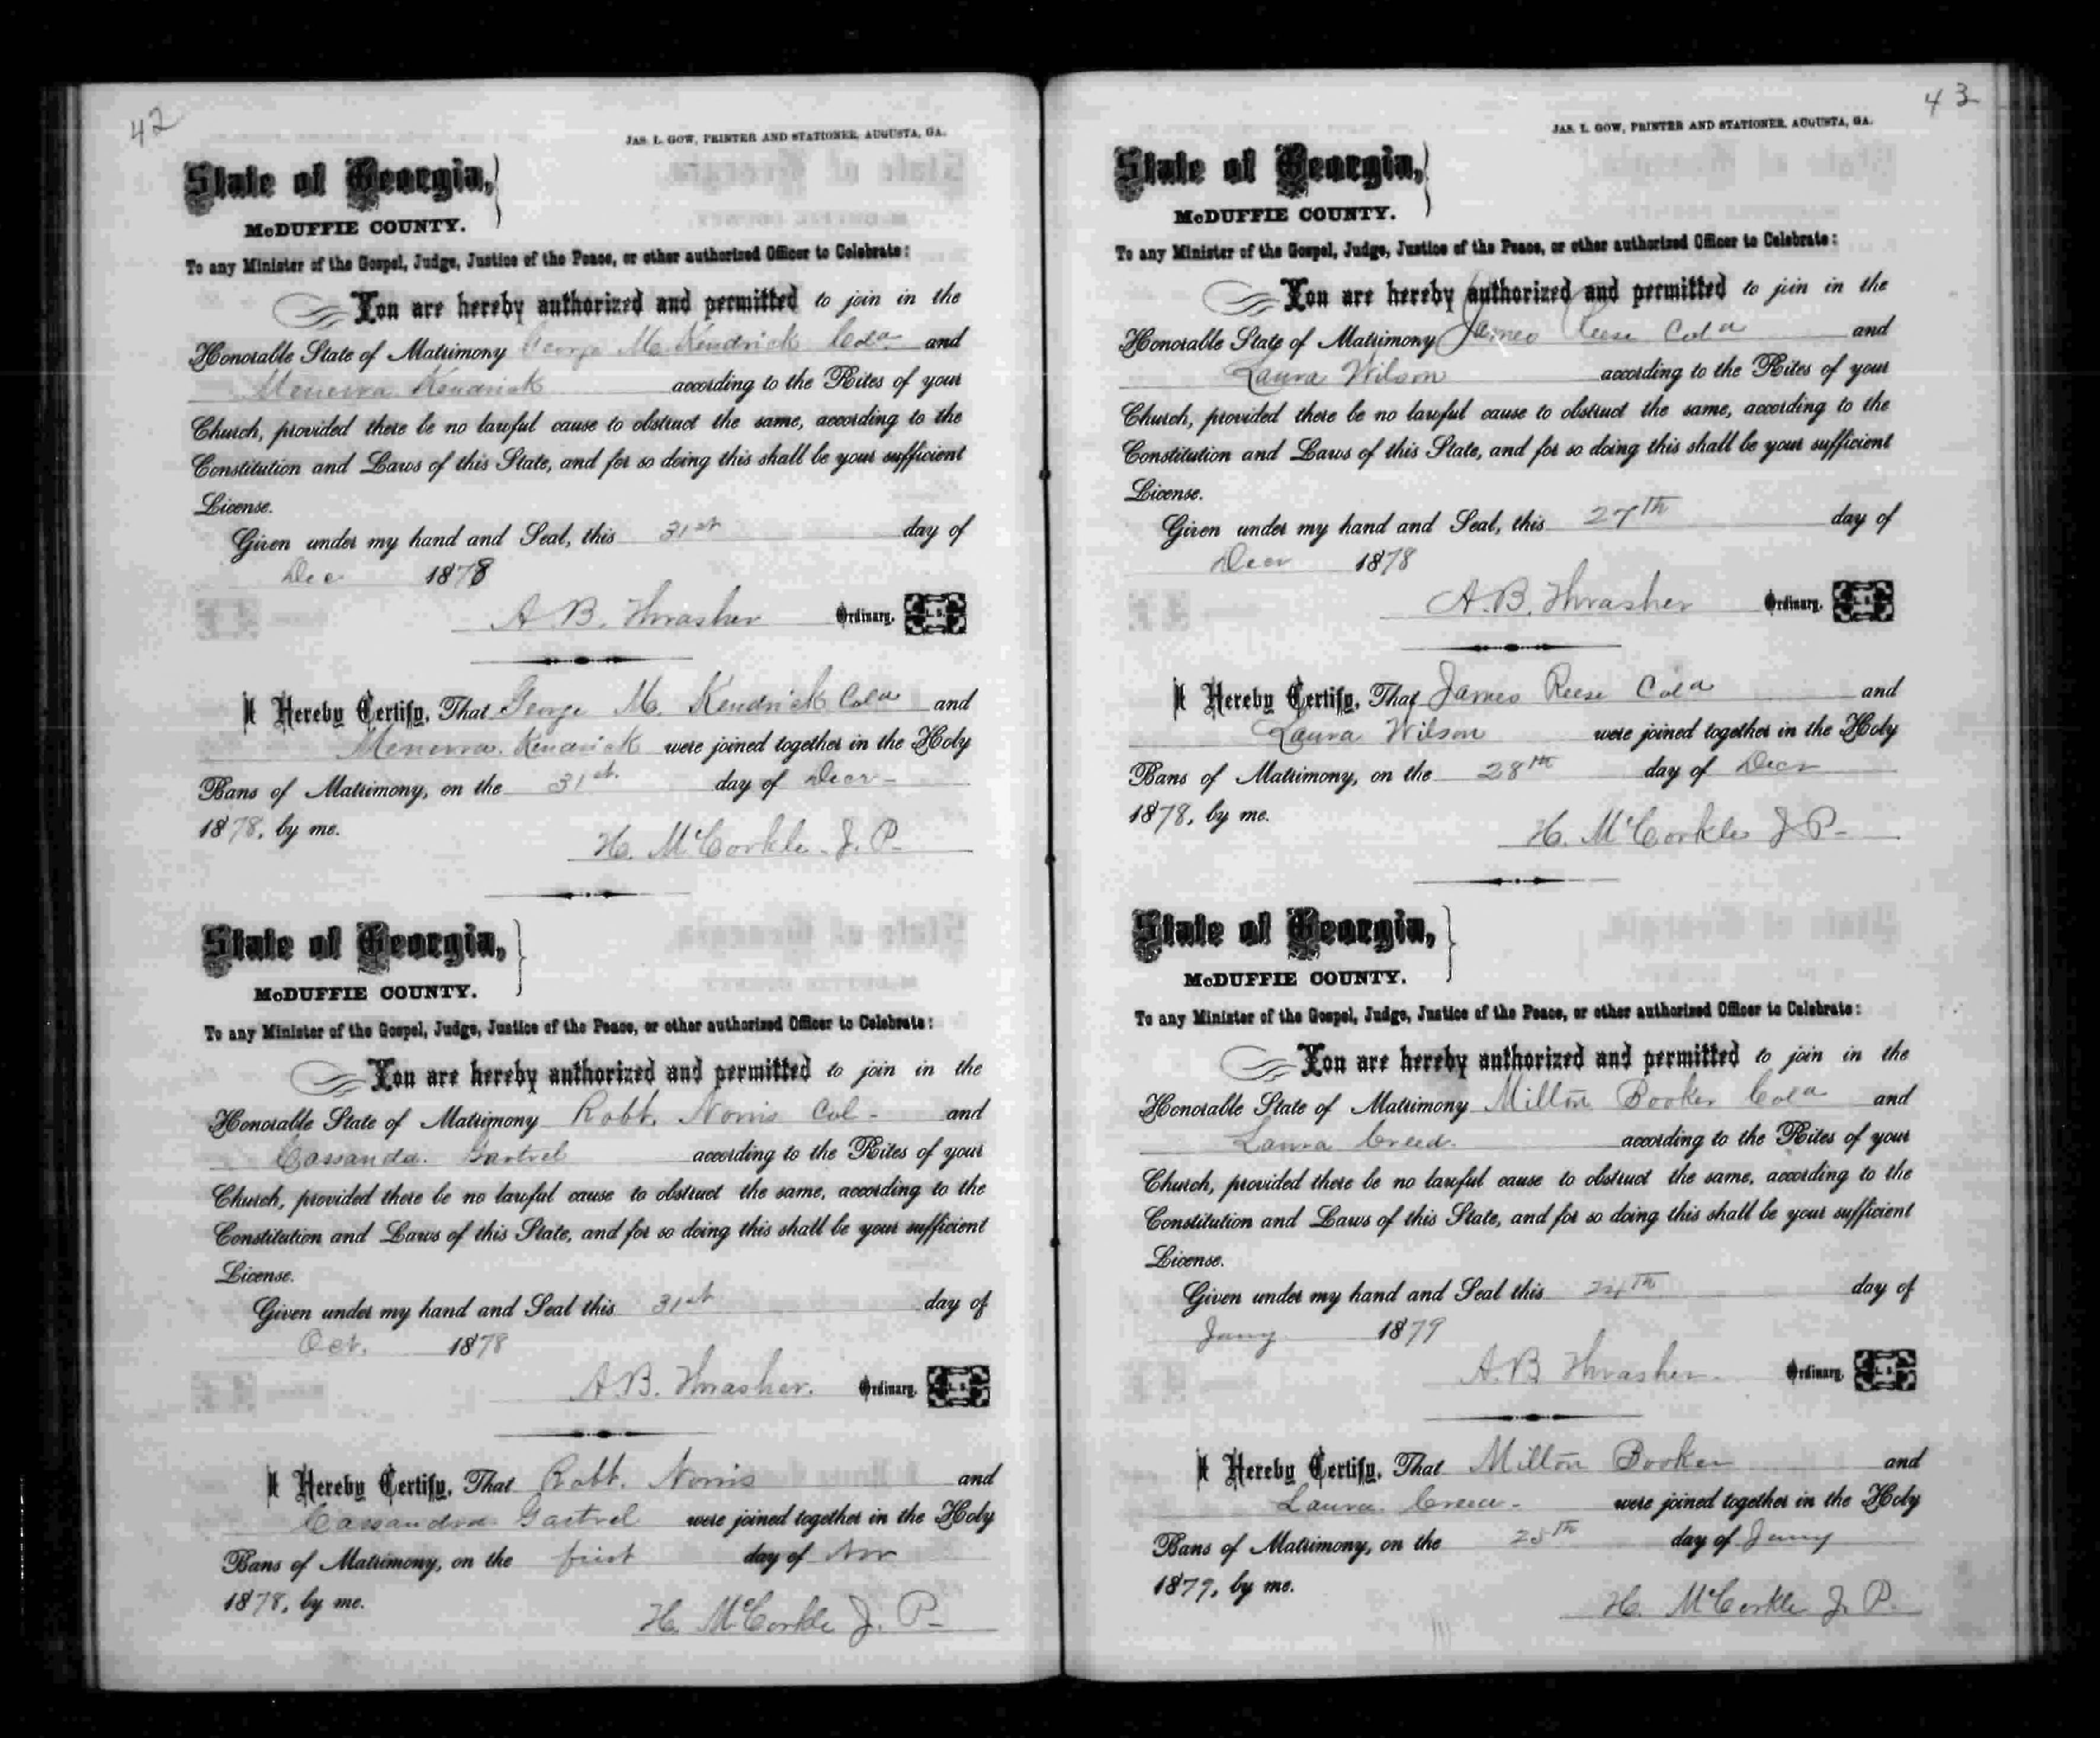 42
JAS. L. GOW, PRINTER AND STATIONER, AUGUSTA, GA.
State of Georgia,
McDUFFIE COUNTY.
To any Minister of the Gospel, Judge, Justice of the Peace, or other authorized Officer to Celebrate:
You are hereby authorized and permitted to join in the
Honorable State of Matrimony George M. Kendrick Cold and
Menerva Kendrick according to the Rites of your
Church, provided there be no lawful cause to obstruct the same, according to the
Constitution and Laws of this State, and for so doing this shall be your sufficient
License.
Given under my hand and Seal, this 31st day of
Dec 1878
A B. Thrasher Ordinary. L. S.
I Hereby Certify, That George M. Kendrick Cold and
Menerva. Kendrick were joined together in the Holy
Bans of Matrimony, on the 31st. day of Decr-
1878, by me.
H. McCorkle J. P.
State of Georgia,
McDUFFIE COUNTY.
To any Minister of the Gospel, Judge, Justice of the Peace, or other authorized Officer to Celebrate:
You are hereby authorized and permitted to join in the
Honorable State of Matrimony Robt. Norris Col- and
Cassanda. Gartrel according to the Rites of your
Church, provided there be no lawful cause to obstruct the same, according to the
Constitution and Laws of this State, and for so doing this shall be your sufficient
License.
Given under my hand and Seal this 31st day of
Oct. 1878
A.B. Thrasher. Ordinary. L. S.
I Hereby Certify, That Robt. Norris and
Cassandra Gartrel were joined together in the Holy
Bans of Matrimony, on the first day of Nov
1878, by me.
H. McCorkle J. P-
43
JAS. L. GOW, PRINTER AND STATIONER, AUGUSTA, GA.
State of Georgia,
McDUFFIE COUNTY.
To any Minister of the Gospel, Judge, Justice of the Peace, or other authorized Officer to Celebrate:
You are hereby authorized and permitted to join in the
Honorable State of Matrimony James Reese Cold and
Laura Wilson according to the Rites of your
Church, provided there be no lawful cause to obstruct the same, according to the
Constitution and Laws of this State, and for so doing this shall be your sufficient
License.
Given under my hand and Seal, this 27th day of
Decr 1878
A.B. Thrasher Ordinary. L. S.
I Hereby Certify, That James Reese Cold and
Laura Wilson were joined together in the Holy
Bans of Matrimony, on the 28th day of Decr
1878, by me.
H. McCorkle J P-
State of Georgia,
McDUFFIE COUNTY.
To any Minister of the Gospel, Judge, Justice of the Peace, or other authorized Officer to Celebrate:
You are hereby authorized and permitted to join in the
Honorable State of Matrimony Milton Booker Cold and
Laura Creed. according to the Rites of your
Church, provided there be no lawful cause to obstruct the same, according to the
Constitution and Laws of this State, and for so doing this shall be your sufficient
License.
Given under my hand and Seal this 24th day of
Jany 1879
A.B Thrasher. Ordinary. L. S.
I Hereby Certify, That Milton Booker and
Laura. Creed- were joined together in the Holy
Bans of Matrimony, on the 25th day of Jany
1879, by me.
H. McCorkle J. P.